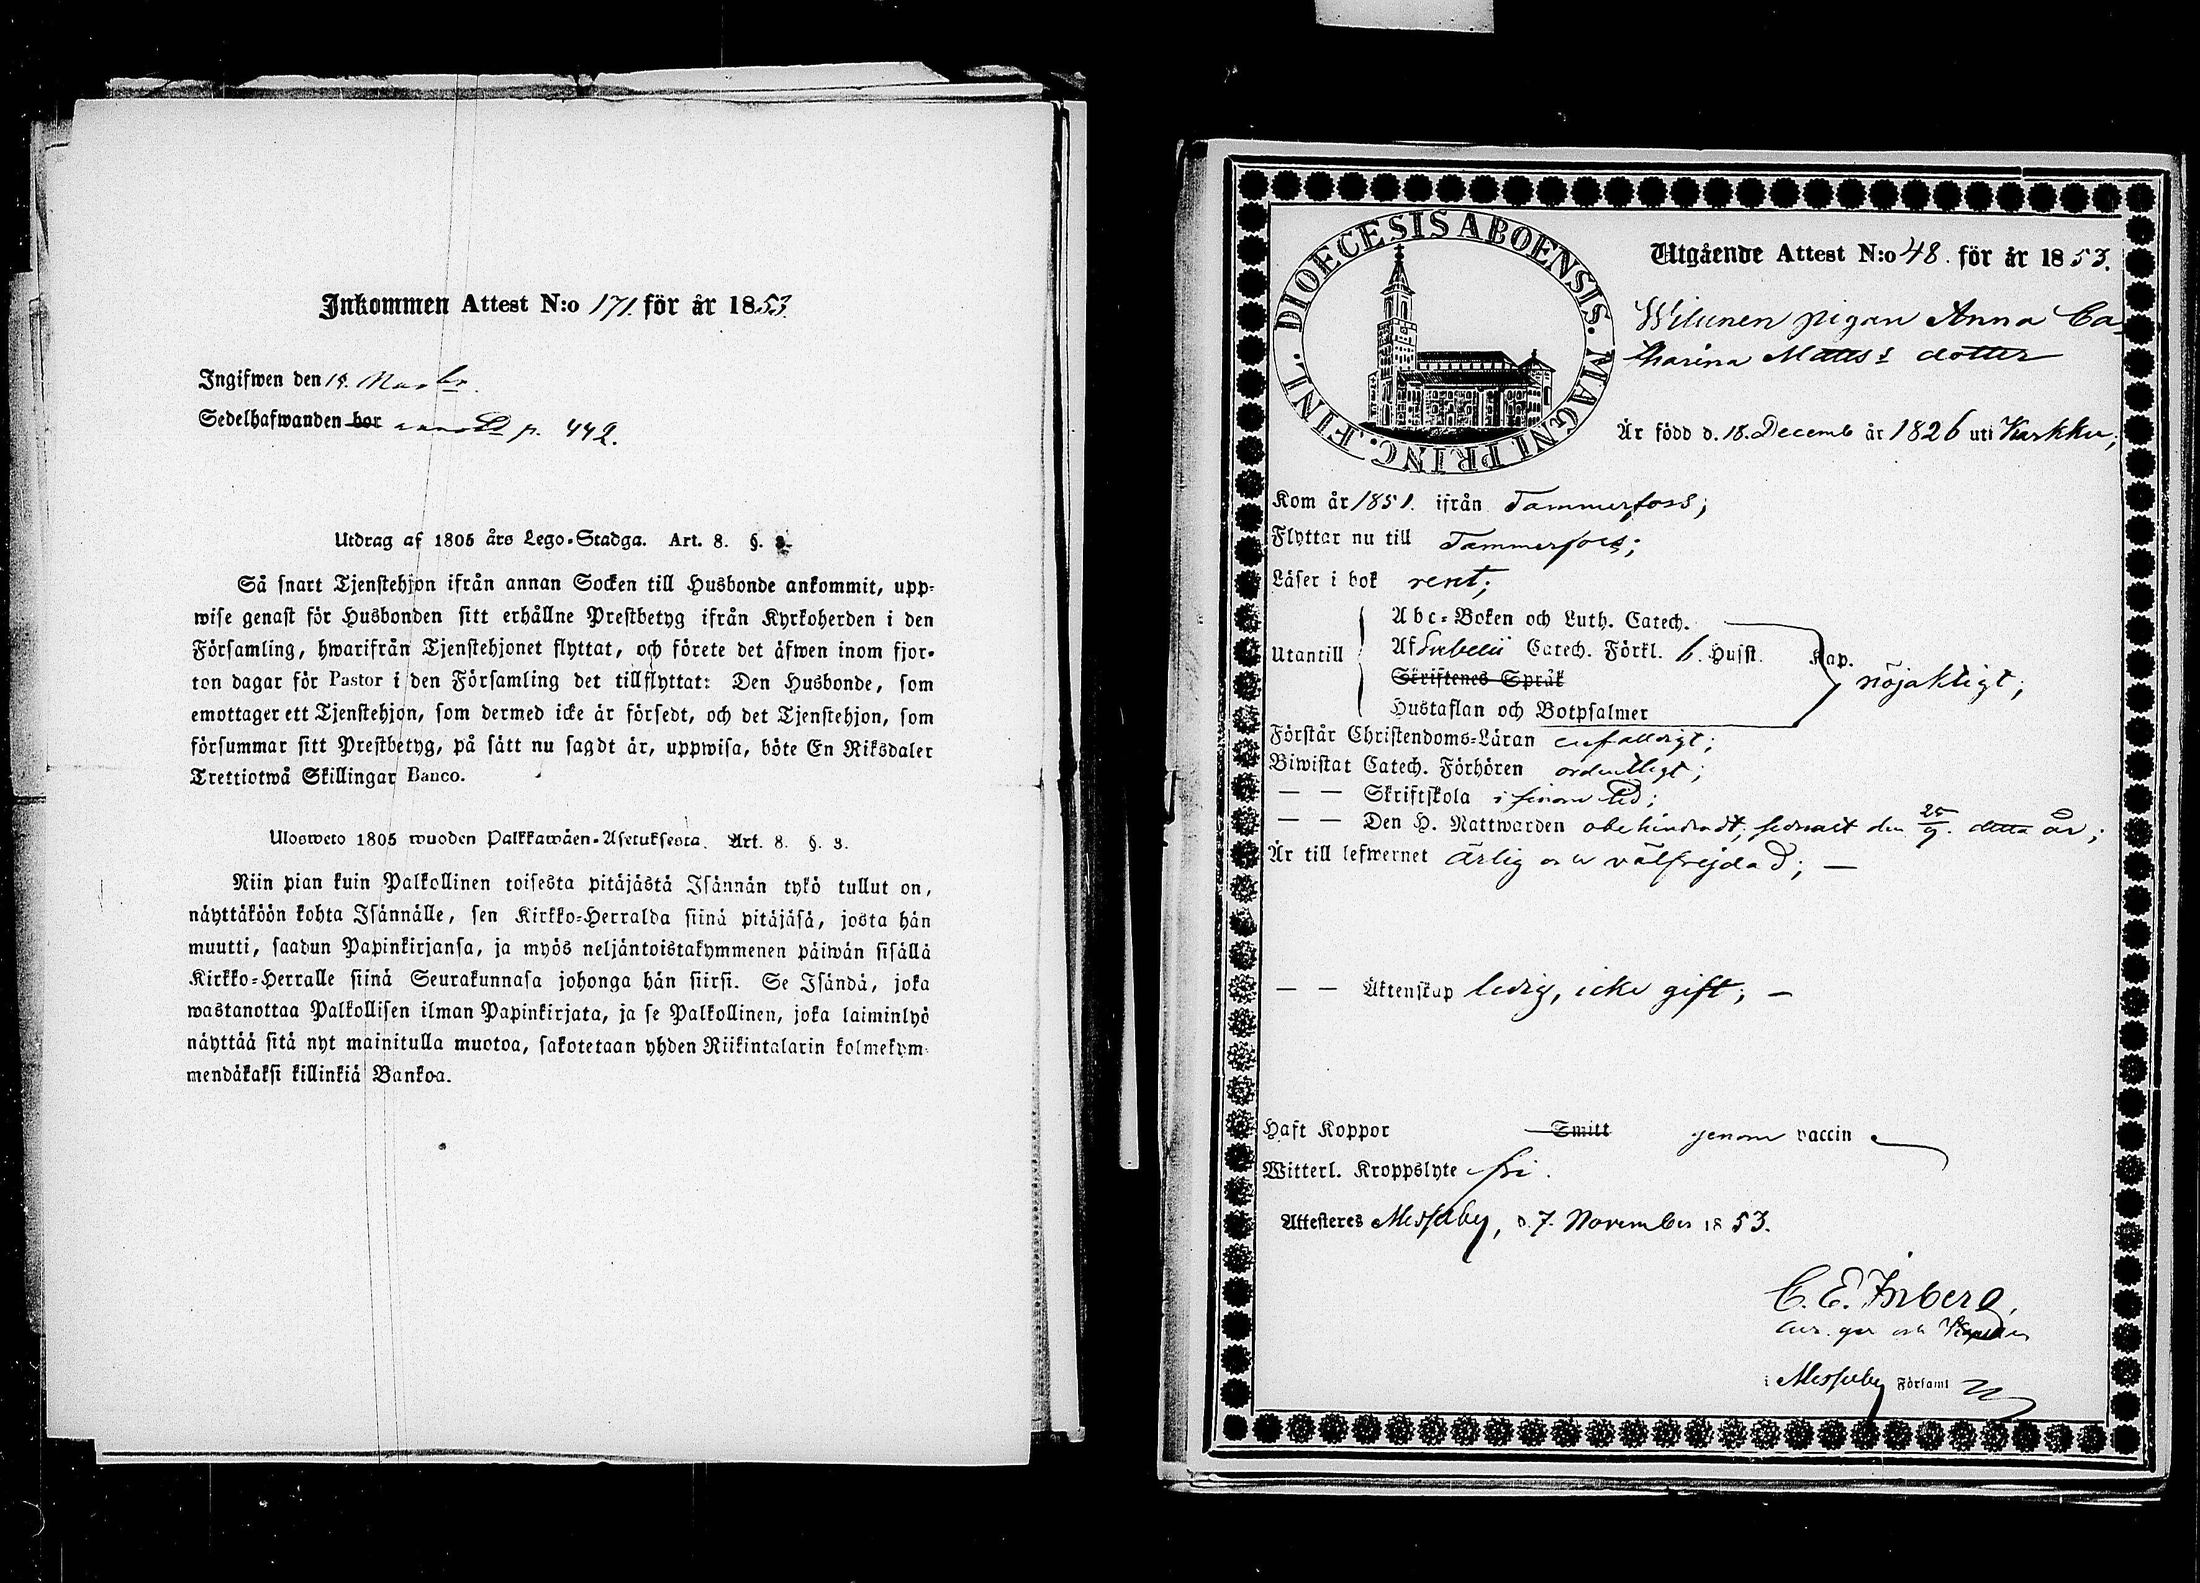 Inkommen Attest N:o 171. för år 1853.
Ingifwen den 14.
Sedelhafwanden bor p. 442.
Utdrag af 1805 års Lego-Stadga. Art. 8. §.
Så snart Tjenstehjon ifrån annan Socken till Husbonde ankommit, upp-
wise genast för Husbonden sitt erhållne Prestbetyg ifrån Kyrkoherden i den
Församling, hwarifrån Tjenstehjonet flyttat, och förete det äfwen inom fjor-
ton dagar för Pastor i den Församling det tillflyttat: Den Husbonde, som
emottager ett Tjenstehjon, som dermed icke är försedt, och det Tjenstehjon, som
försummar sitt Prestbetyg, på sätt nu sagdt är, uppwisa, böte En Riksdaler
Trettiotwå Skillingar Banco.
Ulosweto 1805 wuoden Palkkawäen-Asetuksesta. Art. 8. §. 3.
Niin pian kuin Palkollinen toisesta pitäjästä Isännän tykö tullut on,
näyttäköön kohta Isännälle, sen Kirkko-Herralda siinä pitäjäsä, josta hän
muutti, saadun Papinkirjansa, ja myös neljäntoistakymmenen päiwän sisällä
Kirkko-Herralle siinä Seurakunnasa johonga hän siirsi. Se Isändä, joka
wastanottaa Palkollisen ilman Papinkirjata, ja se Palkollinen, joka laiminlyö
näyttää sitä nyt mainitulla muotoa, sakotetaan yhden Riikintalarin kolmekym-
mendäkaksi killinkiä Bankoa.
DIOECESIS ABOENSIS. MAGNI PRINC. FINL.
Utgående Attest N:o 48. för år 1853.
pigan Anna Ca-
tharina Matts dotter
Är född d. 18. Decemb år 1826 uti Karkku;
Kom år 1851. ifrån Tammerfors;
Flyttar nu till Tammerfors;
Läser i bok rent;
Utantill
Abc-Boken och Luth. Catech.
Af Svebelii Catech. Förkl. 6. Husst. Kap.
Skriftenes Språk
Hustaflan och Botpsalmer
nöjaktigt;
Förstår Christendoms-Läran enfaldigt;
Biwistat Catech. Förhören ordentligt;
— — Skriftskola i sinom tid;
— — Den H. Nattwarden obehindradt; sednast den 25/9. detta år;
Är till lefwernet ärlig och välfrejdad; —
— — Äktenskap ledig, icke gift; —
Haft Koppor Smitt genom vaccin
Witterl. Kroppslyte fri.
Attesteres Messuby, d. 7. November 1853.
C. E.
i Messuby Församl